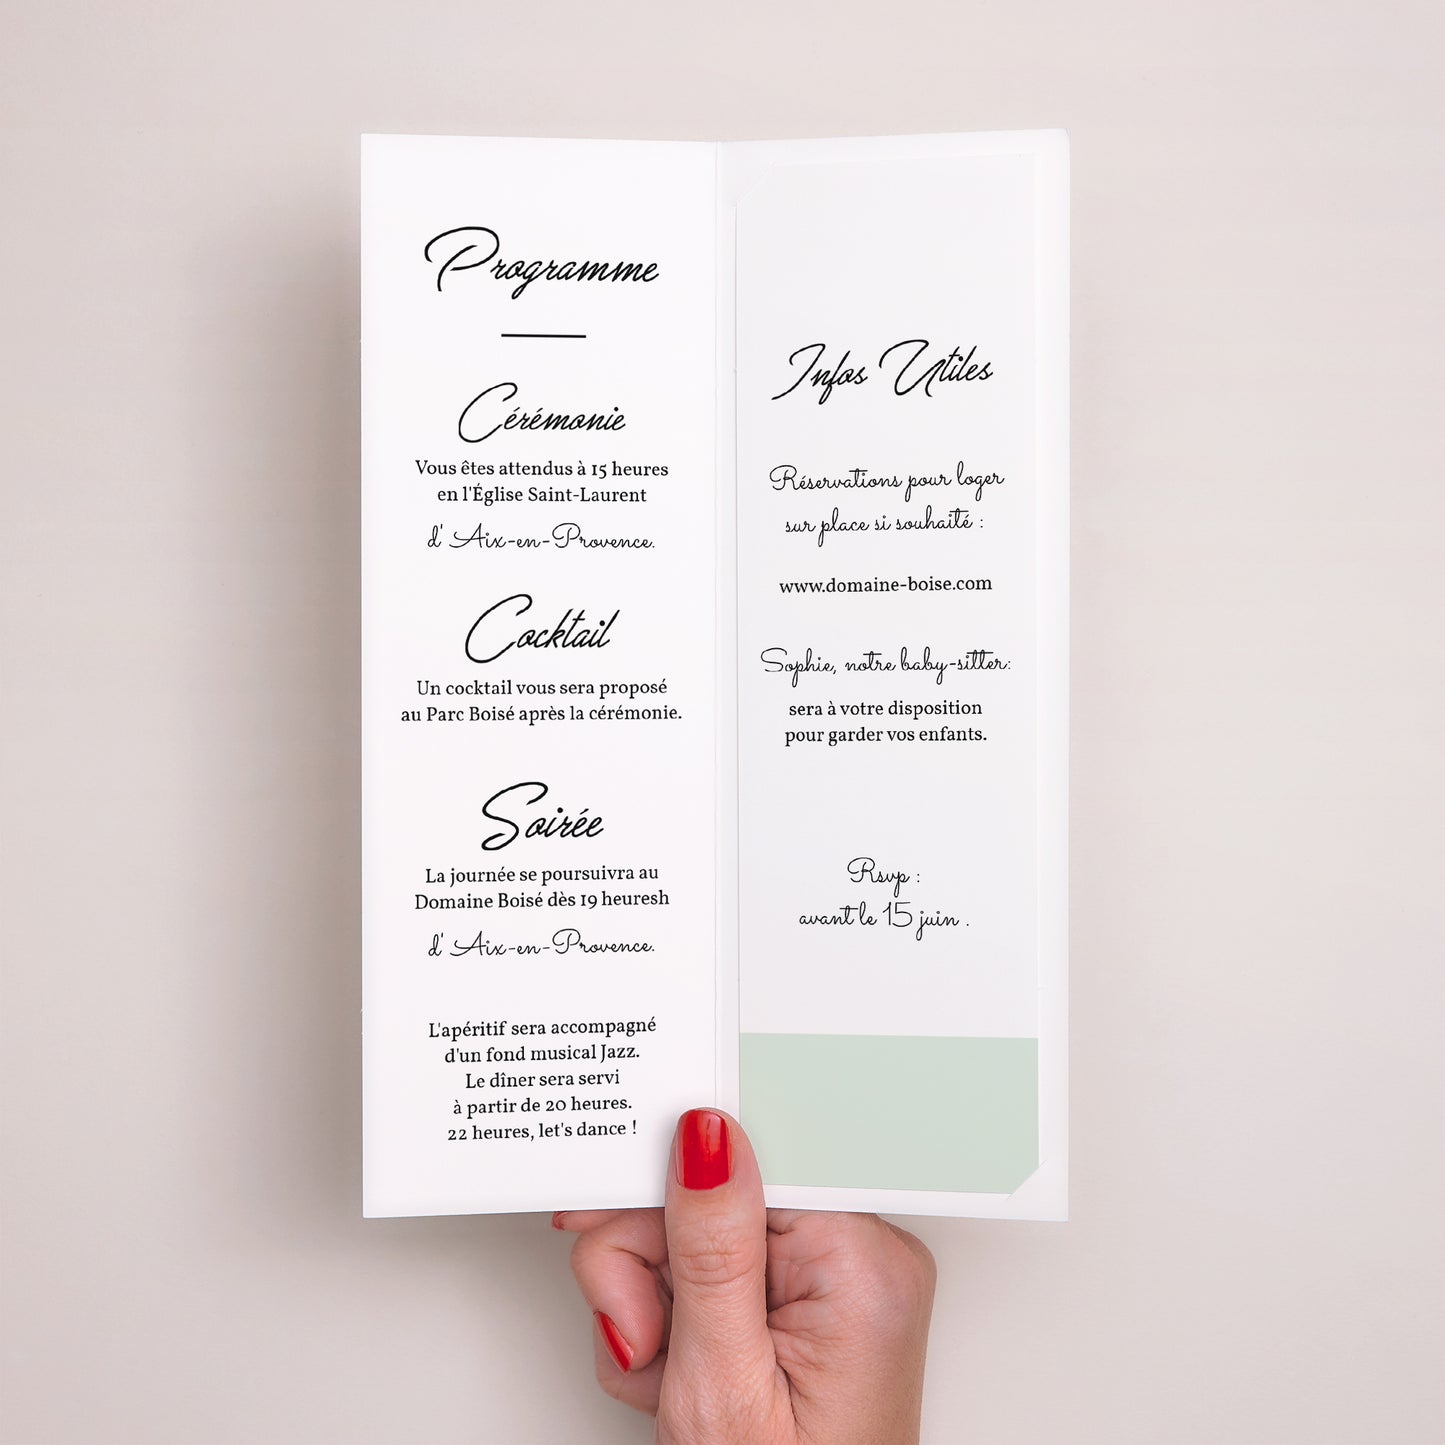 Programme
Cérémonie
Vous êtes attendus à 15 heures
en l'Église Saint-Laurent
d' Aix-en-Provence.
Cocktail
Un cocktail vous sera proposé
au Parc Boisé après la cérémonie.
Soirée
La journée se poursuivra au
Domaine Boisé dès 19 heuresh
d' Aix-en-Provence.
L'apéritif sera accompagné
d'un fond musical Jazz.
Le dîner sera servi
à partir de 20 heures.
22 heures, let's dance !
Infos Utiles
Réservations pour loger
sur place si souhaité :
www.domaine-boise.com
Sophie, notre baby-sitter:
sera à votre disposition
pour garder vos enfants.
Rsvp :
avant le 15 juin .